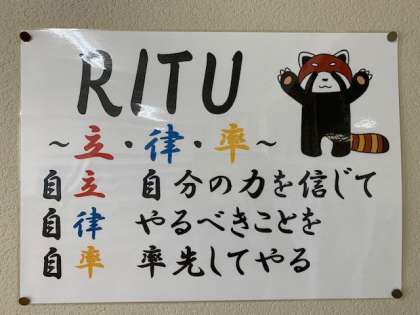 RITU
～立・律・率～
自立 自分の力を信じて
自律 やるべきことを
自率 率先してやる